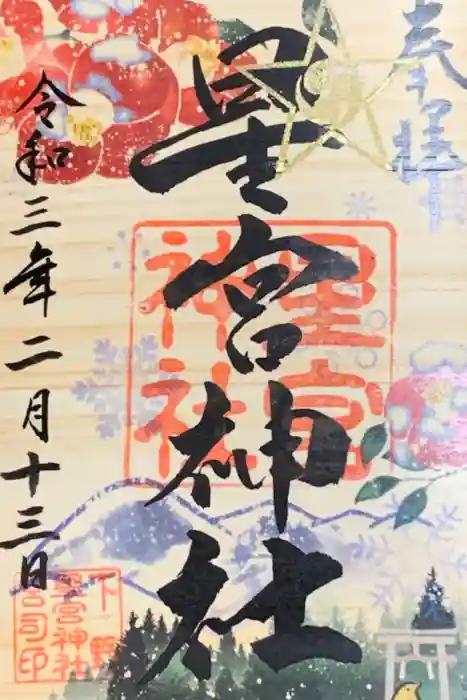 奉拝
星宮神社
星宮
神社
令和三年二月十三日
下野
星宮神社
宮司印